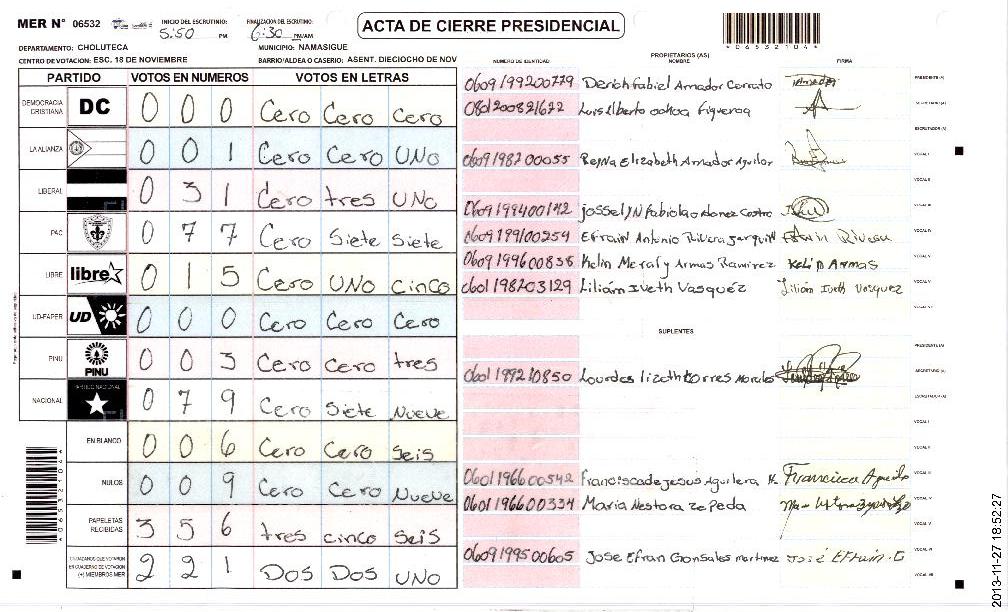 MER N° 06532
INICIO DEL ESCRUTINIO: 5:50 PM
FINALIZACION DEL ESCRUTINIO: 6:30 PM/AM
ACTA DE CIERRE PRESIDENCIAL
*06532104*
DEPARTAMENTO: CHOLUTECA
MUNICIPIO: NAMASIGUE
CENTRO DE VOTACION: ESC. 18 DE NOVIEMBRE
BARRIO/ALDEA O CASERIO: ASENT. DIECIOCHO DE NOV
PARTIDO VOTOS EN NUMEROS VOTOS EN LETRAS
DEMOCRACIA CRISTIANA DC 0 0 0 Cero Cero Cero
LA ALIANZA 0 0 1 Cero Cero UNO
LIBERAL 0 3 1 Cero tres UNO
PAC 0 7 7 Cero Siete Siete
LIBRE libre 0 1 5 Cero UNO cinco
UD-FAPER UD 0 0 0 Cero Cero Cero
PINU PINU 0 0 3 Cero Cero tres
NACIONAL PARTIDO NACIONAL 0 7 9 Cero Siete Nueve
EN BLANCO 0 0 6 Cero Cero Seis
NULOS 0 0 9 Cero Cero Nueve
PAPELETAS RECIBIDAS 3 5 6 tres cinco Seis
CIUDADANOS QUE VOTARON EN CUADERNO DE VOTACION (+) MIEMBROS MER 2 2 1 DOS DOS UNO
*06532104*
NUMERO DE IDENTIDAD
PROPIETARIOS (AS)
NOMBRE
FIRMA
0609199200779 Derich fabiel Amador Corrato PRESIDENTE (A)
0801200821622 Luis Alberto ochoa Figueroa SECRETARIO (A)
ESCRUTADOR (A)
0609198200055 Reyna Elizabeth Amador Aguilar VOCAL I
VOCAL II
0609199400142 josselyN fabiola ordonez Castro VOCAL III
0609199100254 Efrain Antonio Rivera VOCAL IV
0609199600838 Kelin Meraly Armas Ramirez Kelin Armas VOCAL V
0601198203129 Lilian Iveth Vasquéz Lilian Iveth Vasquez VOCAL V
SUPLENTES
PRESIDENTE (A)
0601199210850 Lourdes lizeth torres Morales SECRETARIO (A)
ESCRUTADOR (A)
VOCAL I
VOCAL II
0601196600542 Francisca de Jesus Aguilera M. Francisca VOCAL III
0601196600334 Maria Nestora Zepeda VOCAL V
VOCAL V
0609199500605 Jose Efran Gonsales martinez José Efrain G VOCAL VI
VOCAL VII
2013-11-27 18:52:27